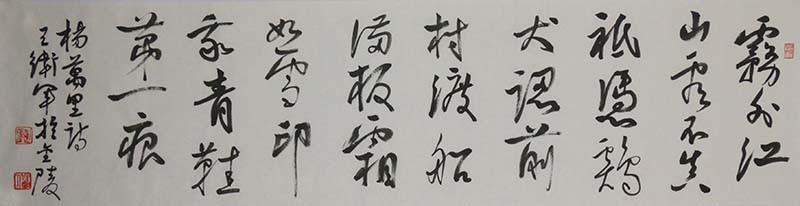 霧外江
山看不真
祗憑鷄
犬認前
村渡船
滿板霜
如雪印
我青鞋
第一痕
楊萬里詩
王衛軍於金陵